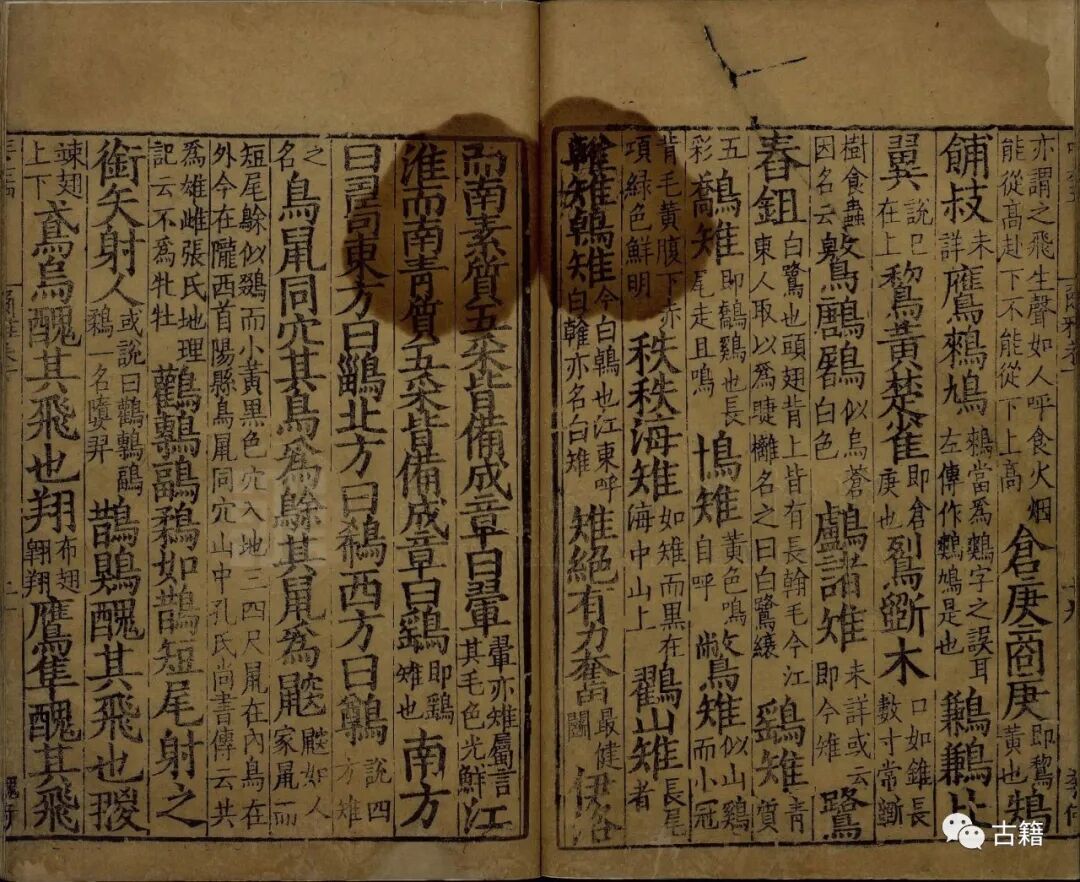 亦謂之飛生聲如人呼食火烟能從高赴下不能從下上高倉庚商庚即鵹黃也鴩
餔敊未詳鷹鶆鳩鶆當爲鷞字之誤耳左傳作鷞鳩是也鶼鶼比
翼說已在上鵹黃楚雀即倉庚也鴷斲木口如錐長數寸常斲
樹食蟲因名云鸄鶶鷵似烏蒼白色鸕諸雉未詳或云即今雉鷺
舂鉏白鷺也頭翅背上皆有長翰毛今江東人取以爲睫㰚名之曰白鷺縗鷂雉青質
五彩鷮雉即鷮雞也長尾走且鳴鳪雉黃色鳴自呼鷩雉似山雞而小冠
背毛黃腹下赤項緑色鮮明秩秩海雉如雉而黑在海中山上鸐山雉長尾者
雗雉鵫雉今白鵫也江東呼白雗亦名白雉雉絕有力奮最健鬬伊洛
而南素質五采皆備成章曰翬翬亦雉屬言其毛色光鮮江
淮而南青質五采皆備成章曰鷂即鷂雉也南方
曰𠷎東方曰鶅北方曰鵗西方曰鷷說四方雉
之名鳥鼠同穴其鳥爲鵌其鼠爲鼵鼵如人家鼠而
短尾鵌似鵽而小黃黑色穴入地三四尺鼠在內鳥在外今在隴西首陽縣鳥鼠同穴山中孔氏尚書傳云共
爲雄雌張氏地理記云不爲牝牡鸛鷒鶝鶔如鵲短尾射之
銜矢射人或說曰鸛鷒鶝鶔一名𪄻羿鵲鵙醜其飛也翪
竦翅上下鳶烏醜其飛也翔布翅翱翔鷹隼醜其飛
古籍